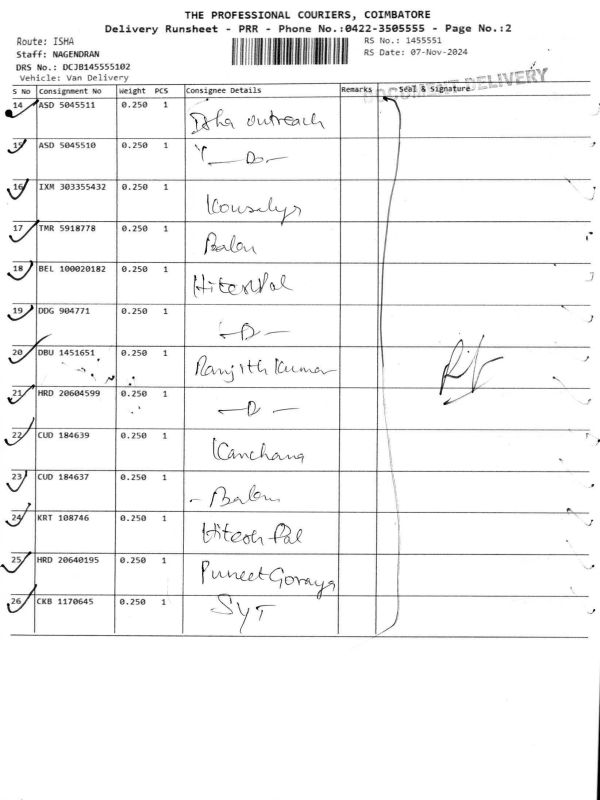 THE PROFESSIONAL COURIERS, COIMBATORE
Delivery Runsheet - PRR - Phone No.:0422-3505555 - Page No.:2
Route: ISHA
RS No.: 1455551
Staff: NAGENDRAN
RS Date: 07-Nov-2024
DRS No.: DCJB145555102
Vehicle: Van Delivery
DOCUMENT DELIVERY
S No Consignment No Weight PCS Consignee Details Remarks Seal & Signature
14 ASD 5045511 0.250 1 Isha outreach
15 ASD 5045510 0.250 1 —D—
16 IXM 303355432 0.250 1
17 TMR 5918778 0.250 1 Balan
18 BEL 100020182 0.250 1 Hitesh Pal
19 DDG 904771 0.250 1 —D—
20 DBU 1451651 0.250 1 Ranjith Kumar
21 HRD 20604599 0.250 1 —D—
22 CUD 184639 0.250 1 Kanchana
23 CUD 184637 0.250 1 - Balan
24 KRT 108746 0.250 1 Hitesh Pal
25 HRD 20640195 0.250 1 Puneet Goraya
26 CKB 1170645 0.250 1 SYT